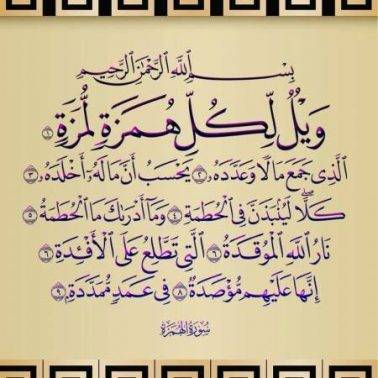 بِسْمِ اللَّهِ الرَّحْمَٰنِ الرَّحِيمِ
وَيْلٌ لِّكُلِّ هُمَزَةٍ لُّمَزَةٍ ١
الَّذِي جَمَعَ مَالًا وَعَدَّدَهُ ٢ يَحْسَبُ أَنَّ مَالَهُ أَخْلَدَهُ ٣
كَلَّا لَيُنبَذَنَّ فِي الْحُطَمَةِ ٤ وَمَا أَدْرَاكَ مَا الْحُطَمَةُ ٥
نَارُ اللَّهِ الْمُوقَدَةُ ٦ الَّتِي تَطَّلِعُ عَلَى الْأَفْئِدَةِ ٧
إِنَّهَا عَلَيْهِم مُّؤْصَدَةٌ ٨ فِي عَمَدٍ مُّمَدَّدَةٍ ٩
سُورَةُ الْهُمَزَة